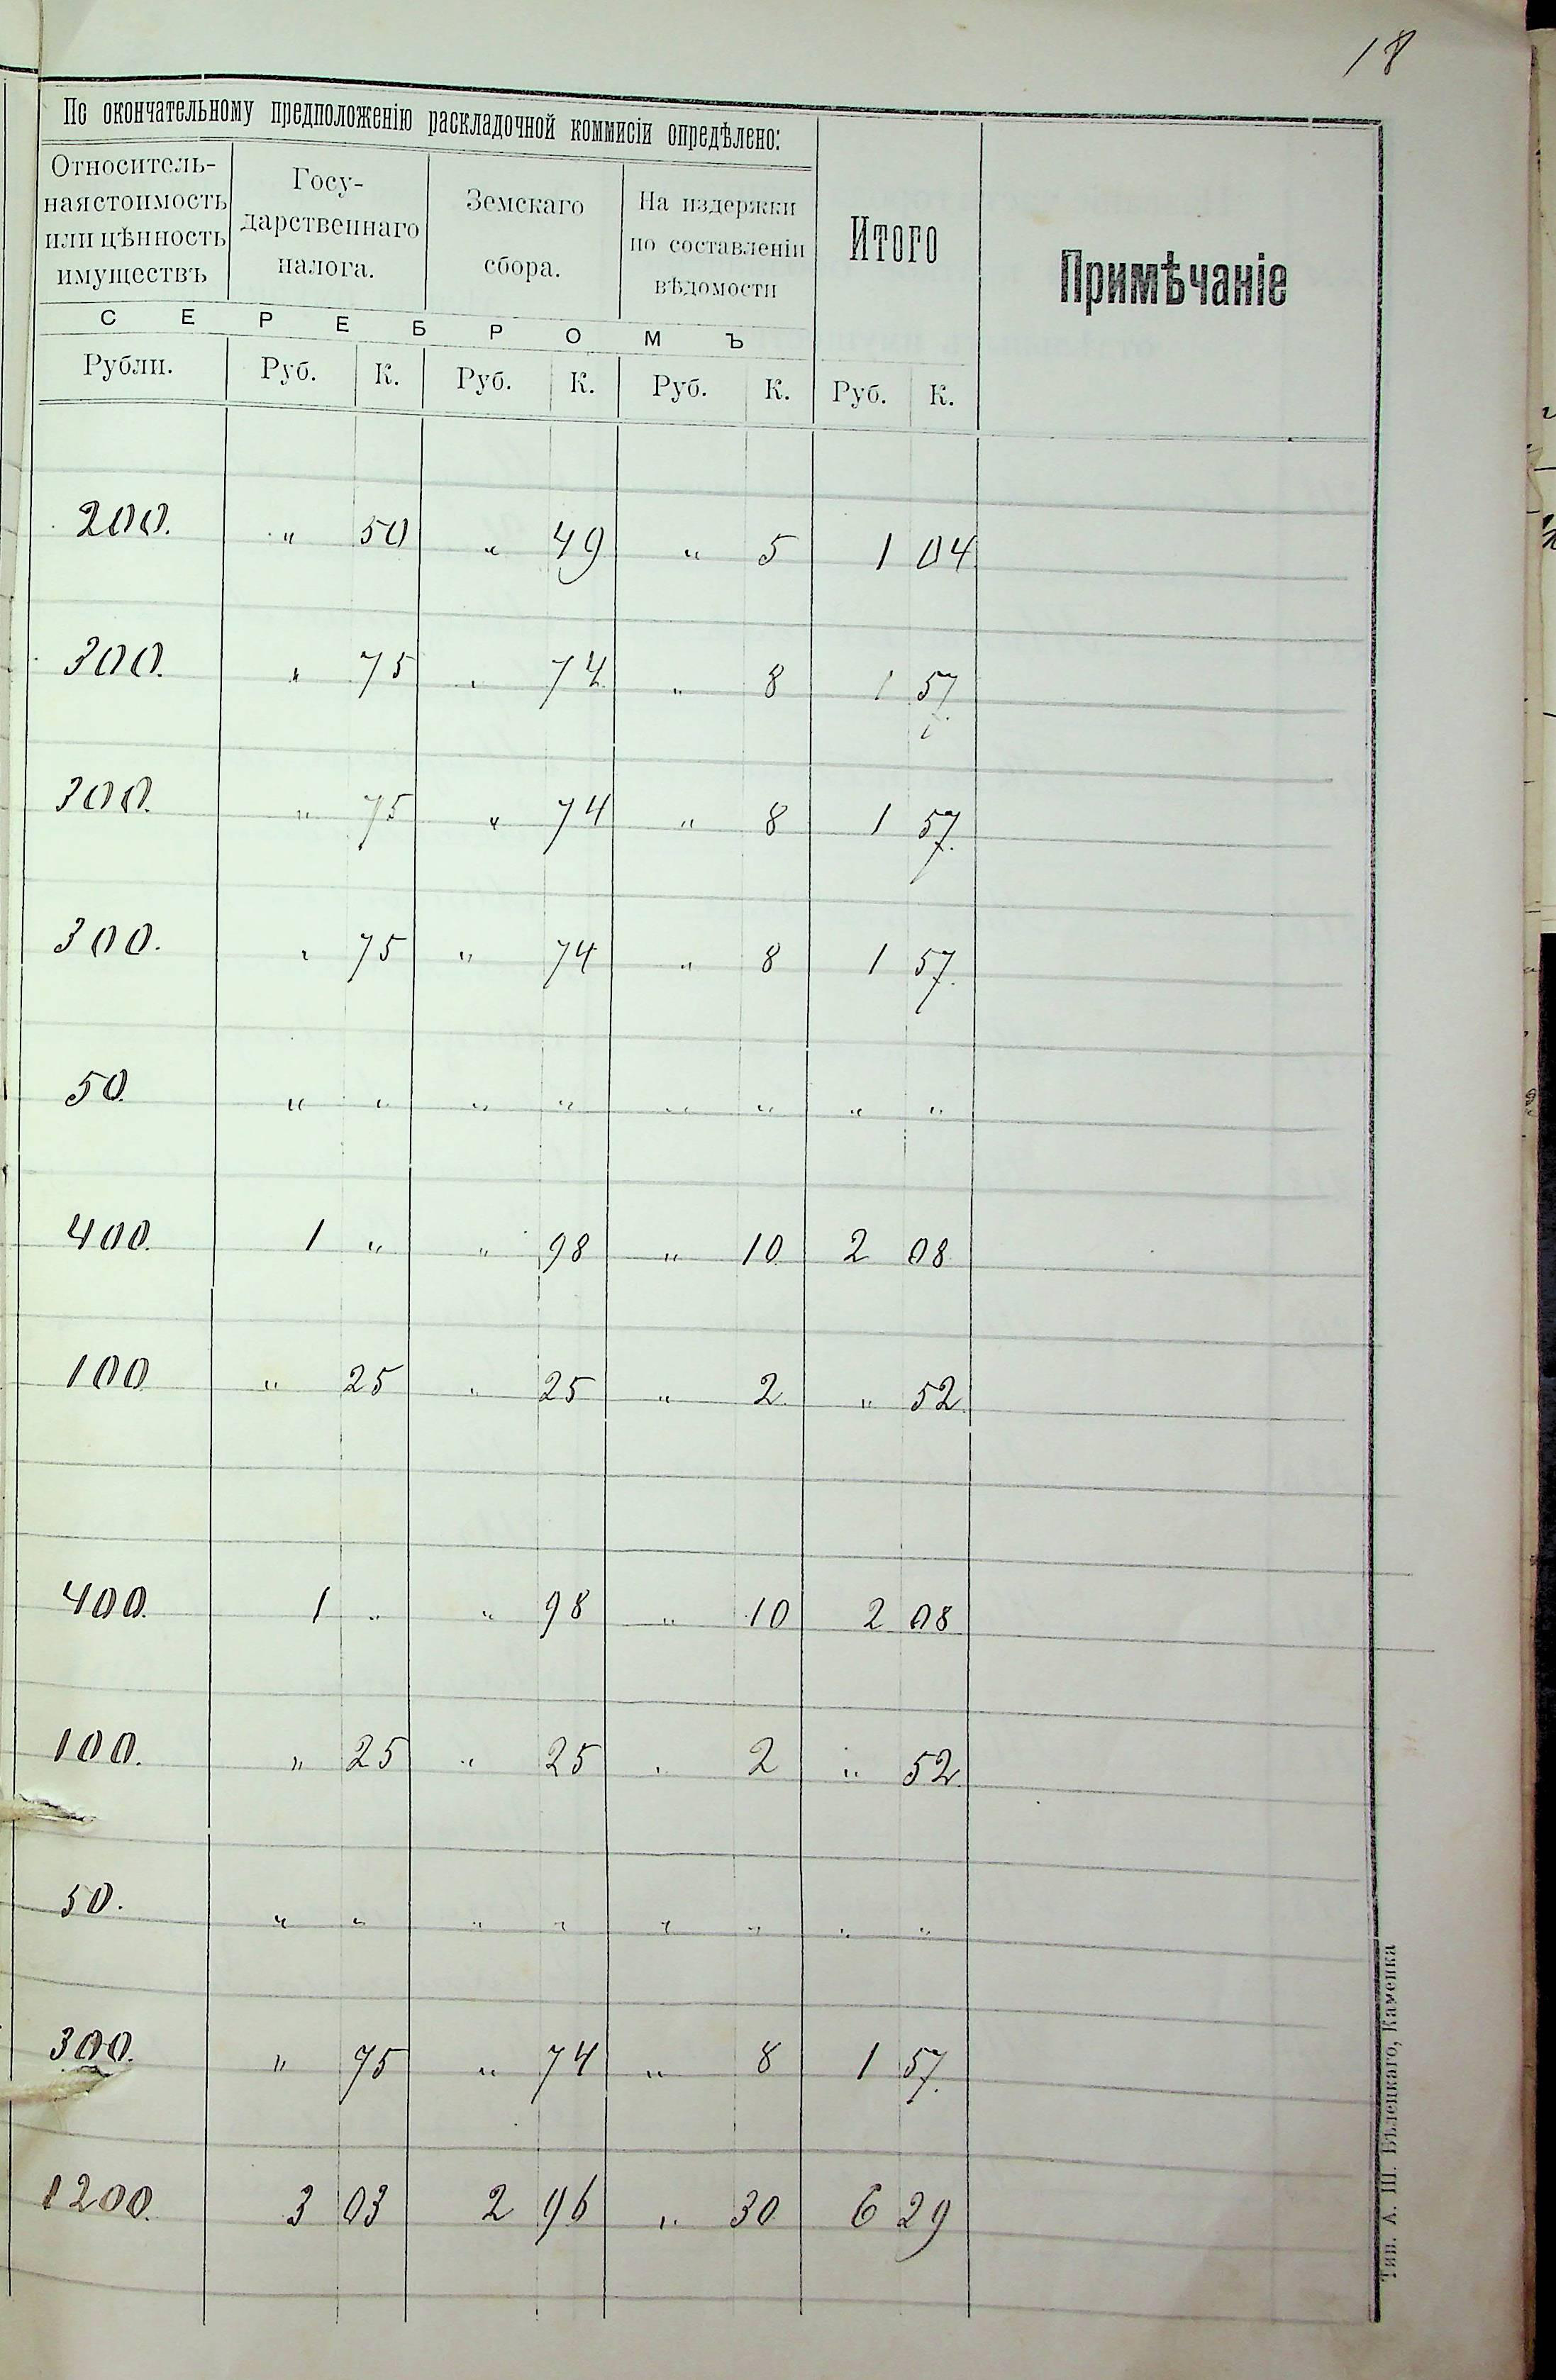 18
По окончательному предположенію раскладочной коммисіи опредѣлено:
Относитель-
ная стоимость
или цѣнность
имуществъ
Госу-
дарственнаго
налога.
Земскаго
сбора.
На издержки
по составленіи
вѣдомости
Итого
Примѣчаніе
С Е Р Е Б Р О М Ъ
Рубли. Руб. К. Руб. К. Руб. К. Руб. К.
200. „ 50 „ 49 „ 5 1 04
300. „ 75 „ 74 „ 8 1 57
300. „ 75 „ 74 „ 8 1 57.
300. „ 75 „ 74 „ 8 1 57.
50. „ „ „ „ „ „ „ „
400. 1 „ „ 98 „ 10 2 08
100 „ 25 „ 25 „ 2. „ 52
400. 1 „ „ 98 „ 10 2 08
100. „ 25 „ 25 „ 2 „ 52.
50. „ „ „ „ „ „ „ „
300. „ 75 „ 74 „ 8 1 57.
1200. 3 03 2 96 „ 30 6 29
Тип. А. Ш. Бѣлецкаго, Каменка